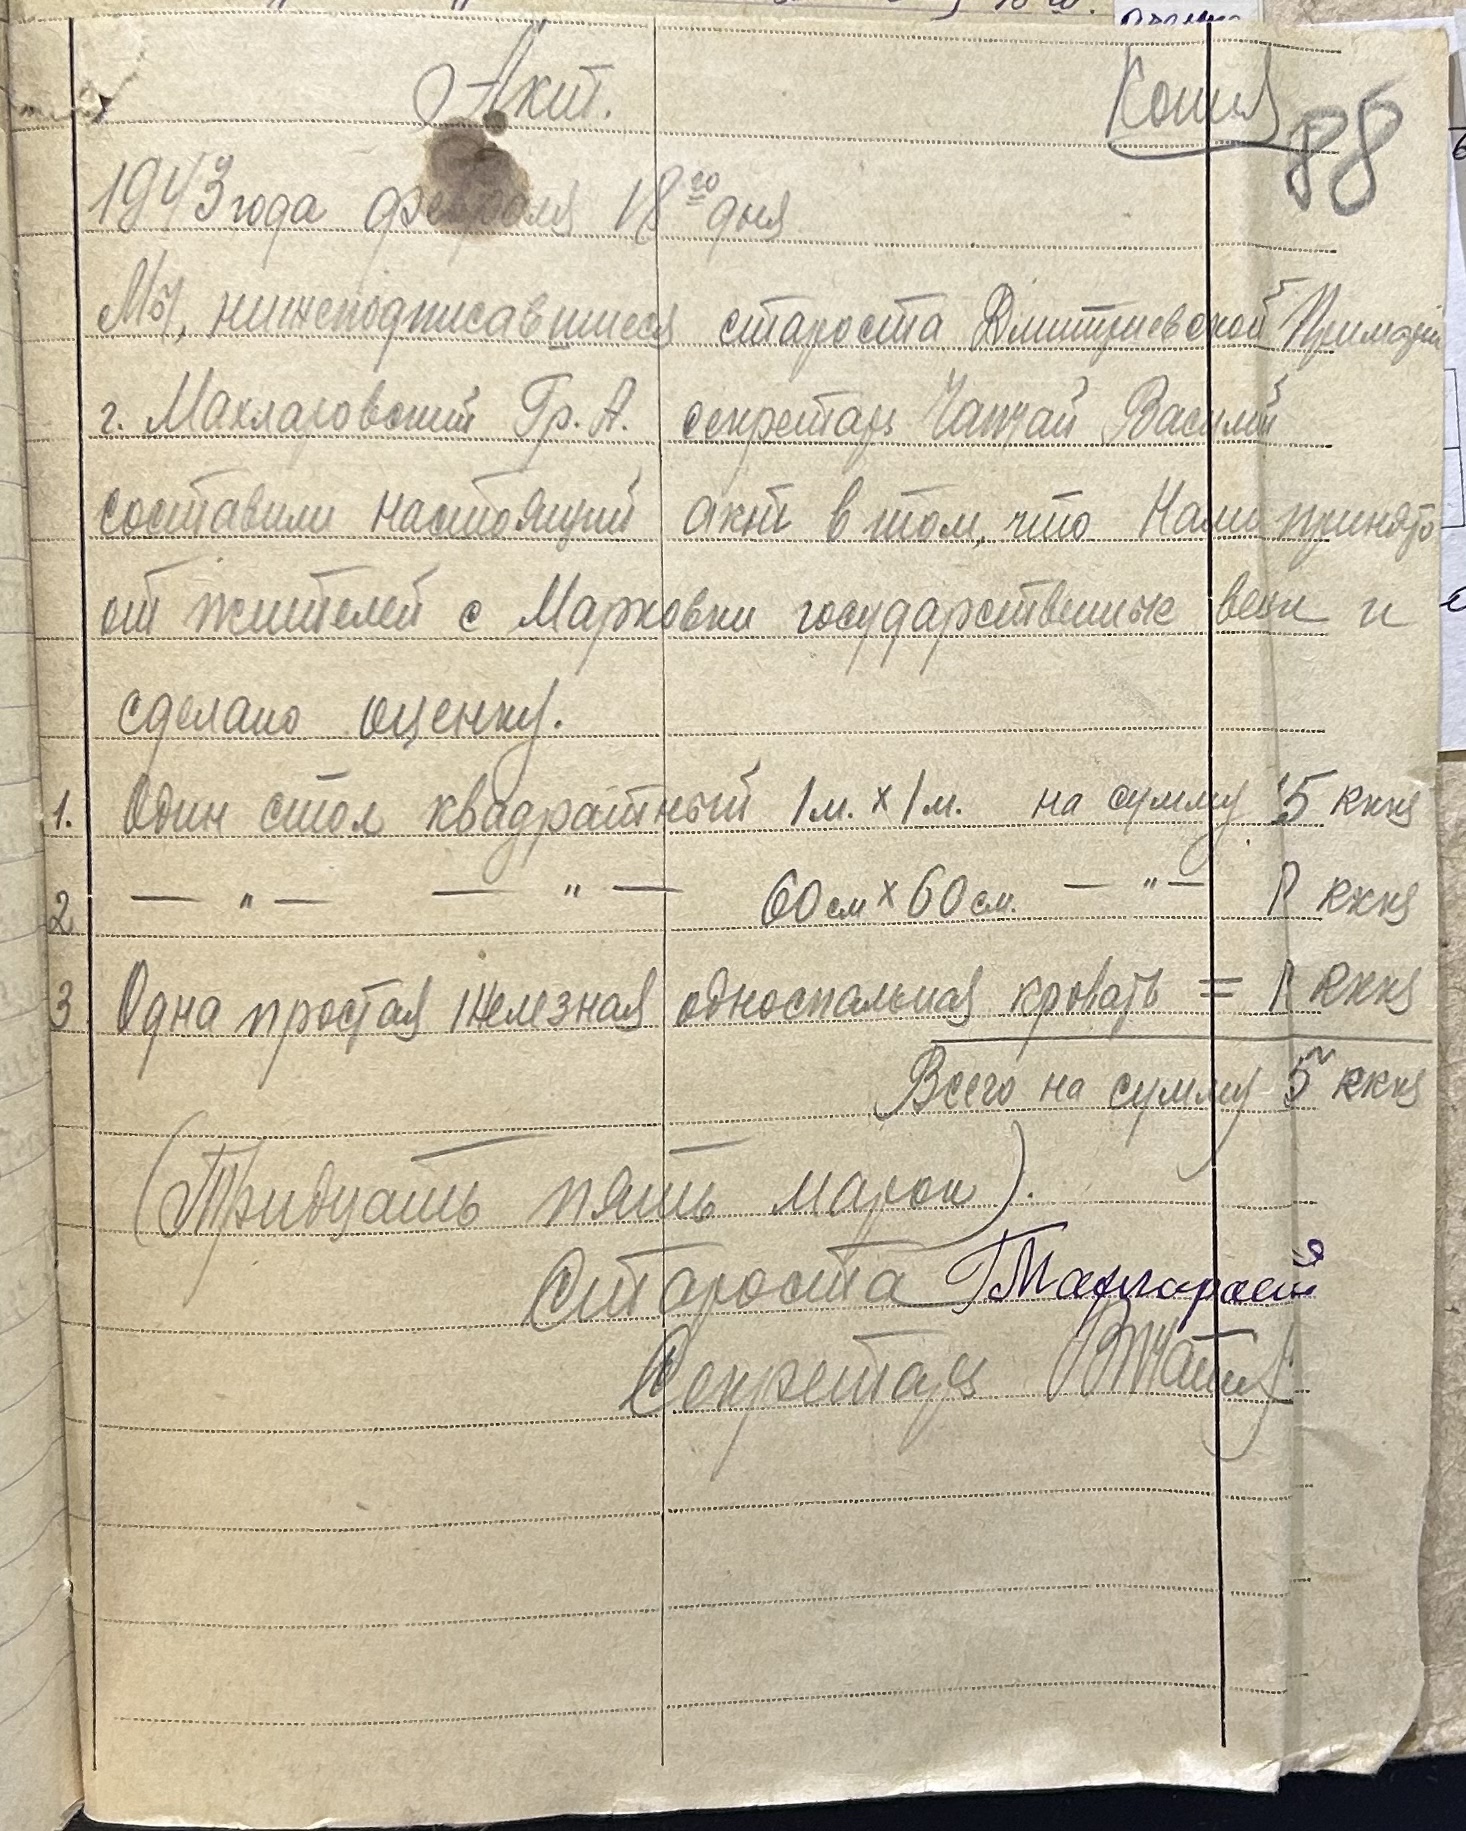 Акт.
Копия
88
1943 года февраля 18го дня
Мы, нижеподписавшиеся староста Дмитриевской
г. Махларовский Гр. А. секретарь Чапчай Василий
составили настоящий акт в том, что Нами принято
от жителей с Марковки государственные вещи и
сделано оценку.
1. Один стол квадратный 1 м. х 1 м. на сумму 15 рккя
2. — " — — " — 60 см х 60 см. — " —
3 Одна простая железная односпальная кровать =
Всего на сумму
(Тридцать пять марок).
Староста
Секретарь